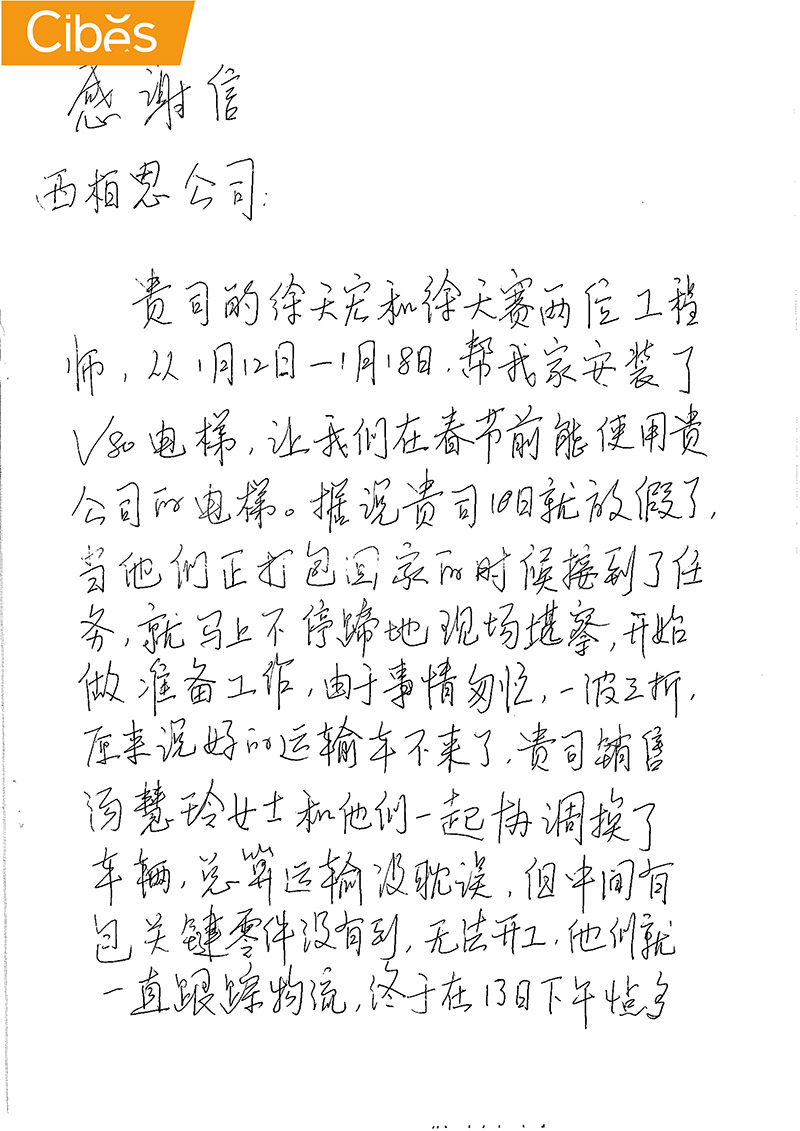 Cibes
感谢信
西柏思公司:
贵司的徐天宏和徐天赛两位工程
师,从1月12日—1月18日.帮我家安装了
V80电梯,让我们在春节前能使用贵
公司的电梯。据说贵司10日就放假了,
当他们正打包回家的时候接到了任
务,就马上不停蹄地现场堪察,开始
做准备工作,由于事情匆忙,一波三折,
原来说好的运输车不来了.贵司销售
汤慧玲女士和他们一起协调换了
车辆,总算运输没耽误,但中间有
包关键零件没有到,无法开工,他们就
一直跟踪物流,终于在13日下午1点多